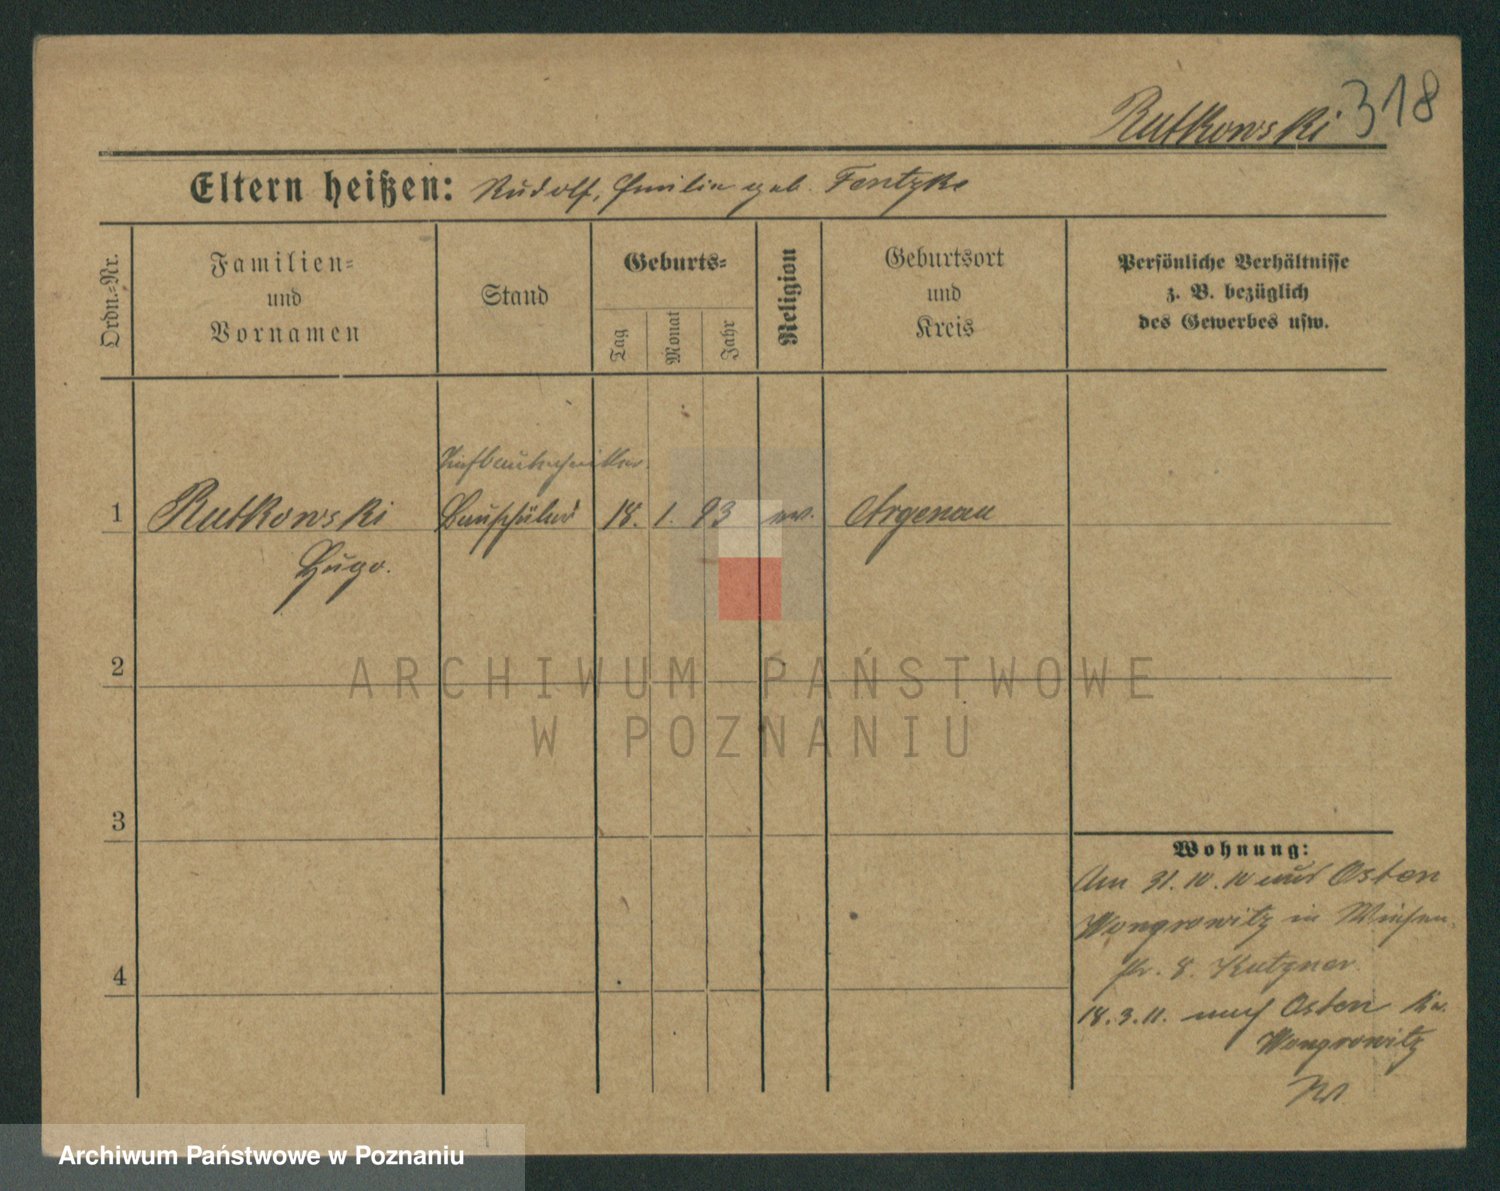 Rutkowski 318
Eltern heißen: Rudolf, Emilie geb. Fentzke
Ordn.-Nr.
Familien-
und
Vornamen
Stand
Geburts-
Tag
Monat
Jahr
Religion
Geburtsort
und
Kreis
Persönliche Verhältnisse
z. B. bezüglich
des Gewerbes usw.
Tiefbautechniker
1 Rutkowski Bauschüler 18. 1. 93 ev. Argenau
Hugo.
2
3
4
Wohnung:
Am 31. 10. 10 aus Osten
Wongrowitz in Wiesen
str. 8. Kutzner
18. 3. 11. nach Osten Kr.
Wongrowitz
ARCHIWUM PAŃSTWOWE
W POZNANIU
Archiwum Państwowe w Poznaniu